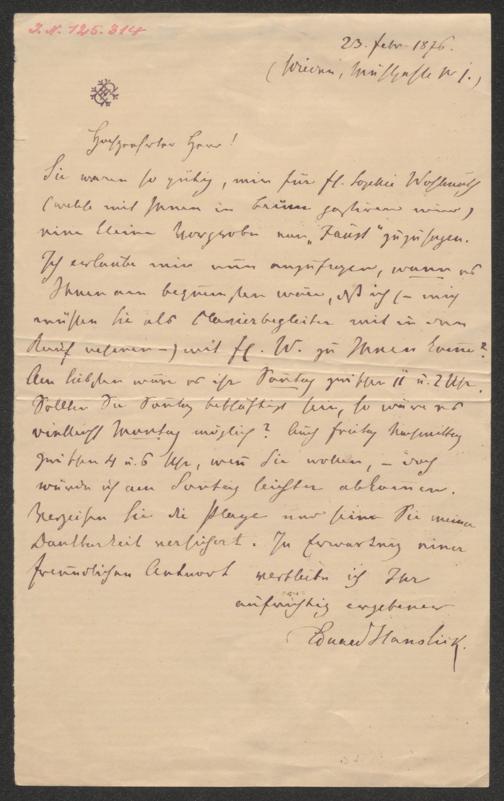 J.N. 125.314
23. Febr. 1876.
(Wien, N 1.)
Hochgeehrter Herr!
Sie waren so gütig, mir für Frl. Sophie
(welche mit Ihnen in Brünn gastiren wird)
eine kleine Vorprobe von „Faust" zuzusagen.
Ich erlaube mir nun anzufragen, wann es
Ihnen am bequemsten wäre, daß ich (– mich
müssen Sie als Clavierbegleiter mit in den
Kauf nehmen –) mit Frl. W. zu Ihnen komme?
Am liebsten wäre es ihr Sonntag zwischen 11 u. 2 Uhr.
Sollten Sie Sonntag beschäftigt sein, so wäre es
vielleicht Montag möglich? Auch Freitag Nachmittag
zwischen 4 u. 6 Uhr, wenn Sie wollen, – doch
würde ich am Sonntag leichter abkommen.
Verzeihen Sie die Plage und seien Sie meiner
Dankbarkeit versichert. In Erwartung einer
freundlichen Antwort verbleibe ich Ihr
aufrichtig ergebener
Eduard Hanslick.